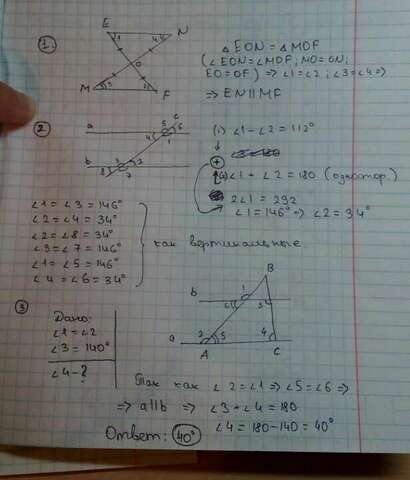 1.
E
N
1
4
O
M
3
2
F
△ EON = △ MOF
(∠EON = ∠MOF; MO = ON;
EO = OF) ⇒ ∠1 = ∠2; ∠3 = ∠4 ⇒
⇒ EN || MF
2
a
b
c
5
6
4
1
3
2
8
7
(1) ∠1 - ∠2 = 112°
+
∠1 + ∠2 = 180 (одностор.)
2∠1 = 292
∠1 = 146° ⇒ ∠2 = 34°
∠1 = ∠3 = 146°
∠2 = ∠4 = 34°
∠2 = ∠8 = 34°
∠3 = ∠7 = 146°
∠1 = ∠5 = 146°
∠4 = ∠6 = 34°
как вертикальные
3
Дано:
∠1 = ∠2
∠3 = 140°
∠4 - ?
B
b
1
6
3
a
2
5
4
A
C
Так как ∠2 = ∠1 ⇒ ∠5 = ∠6 ⇒
⇒ a || b ⇒ ∠3 + ∠4 = 180
∠4 = 180 - 140 = 40°
Ответ: 40°